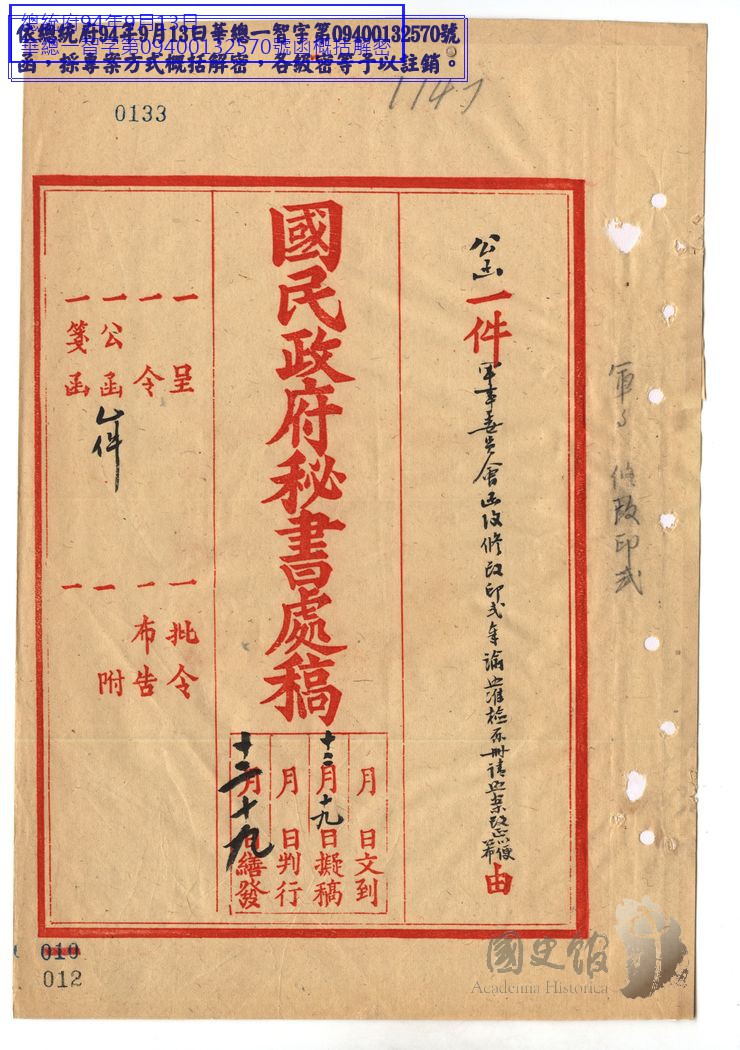 總統府94年9月13日
華總一智字第09400132570號函概括解密
依總統府94年9月13日華總一智字第09400132570號
函，採專案方式概括解密，各級密等予以註銷。
0133
公函一件
軍事委員會函
修改印式
由
軍
修改印式
國民政府秘書處稿
月日文到
十二月十九日擬稿
月日判行
十二月十九日繕發
一呈
一令
一公函 件
一箋函
一批令
一布告
一附
一
010
012
國史館
Academia Historica